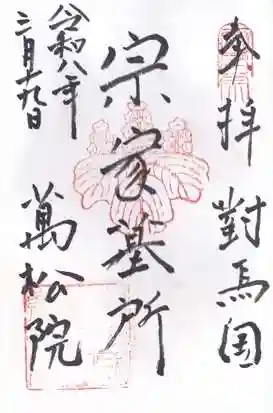 奉拝 對馬国
宗家墓所
令和八年
三月十九日
萬松院